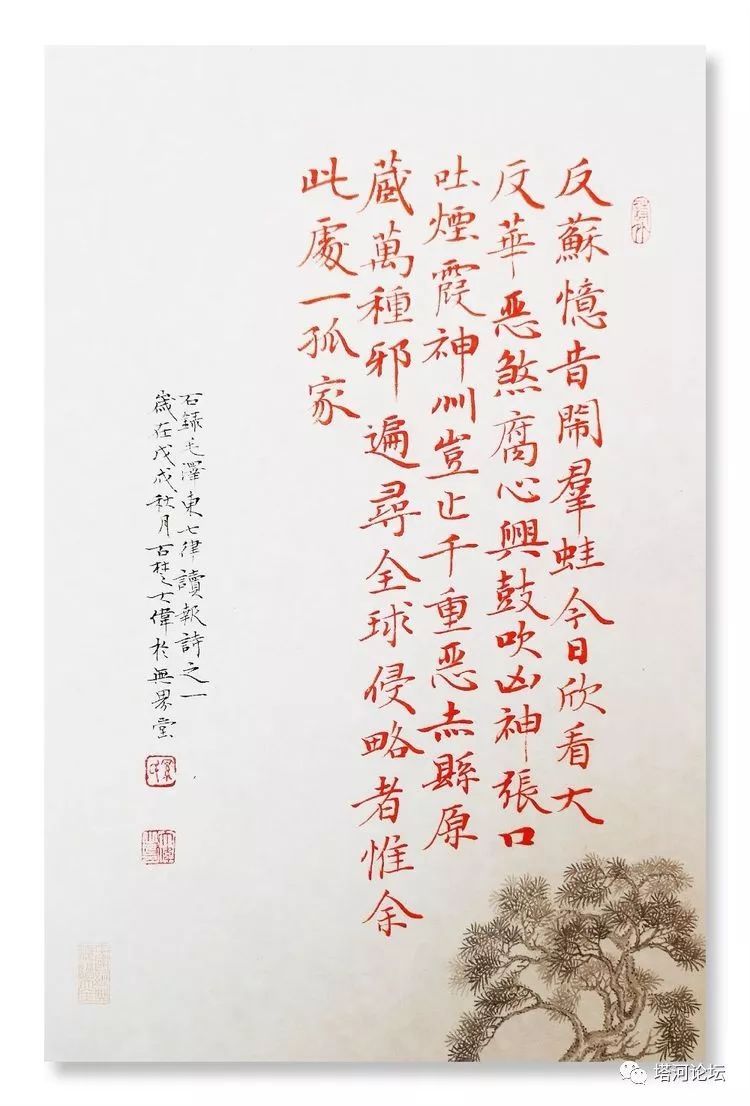 反蘇憶昔鬧羣蛙今日欣看大
反華恶煞腐心興鼓吹凶神張口
吐煙霞神州豈止千重恶赤縣原
藏萬種邪遍尋全球侵略者惟余
此處一孤家
右録毛澤東七律讀報詩之一
歲在戊戌秋月古楚大偉於無界堂
塔河论坛